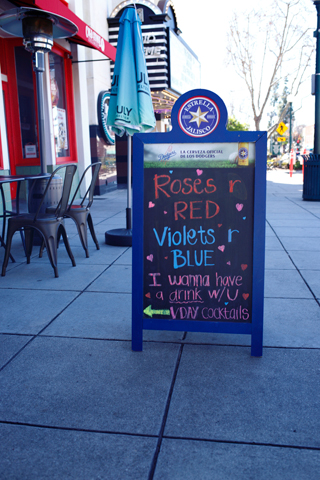 ESTRELLA
JALISCO
LA CERVEZA OFICIAL
DE LOS DODGERS
Roses r
RED
Violets r
BLUE
I wanna have
a drink w/U
VDAY cocktails